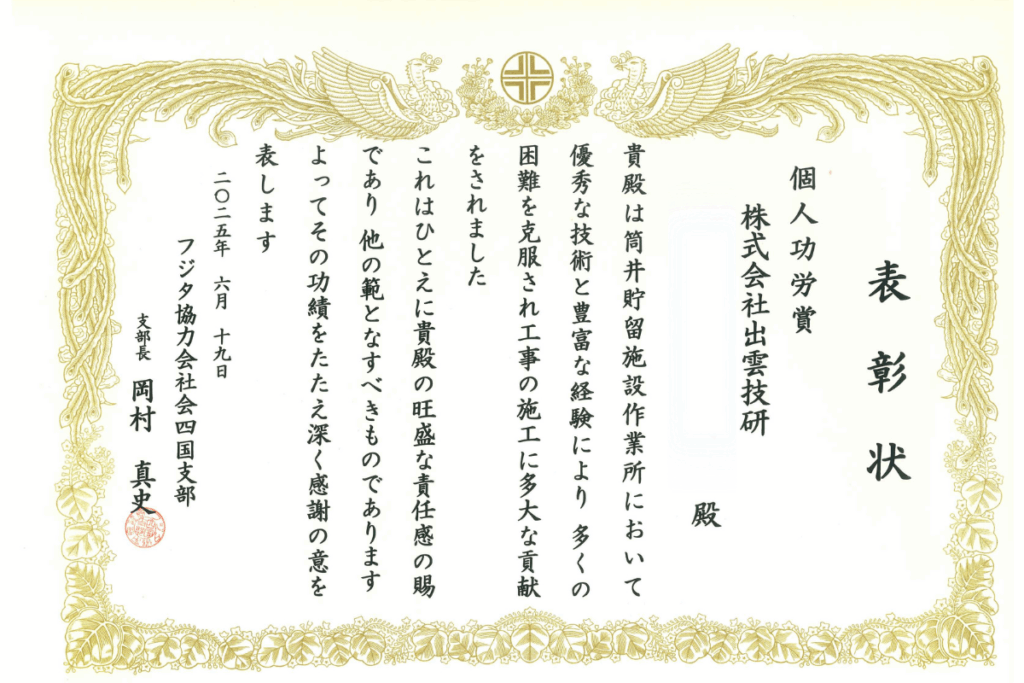 表彰状
個人功労賞
株式会社出雲技研
殿
貴殿は筒井貯留施設作業所において
優秀な技術と豊富な経験により 多くの
困難を克服され工事の施工に多大な貢献
をされました
これはひとえに貴殿の旺盛な責任感の賜
であり 他の範となすべきものであります
よってその功績をたたえ深く感謝の意を
表します
二〇二五年 六月 十九日
フジタ協力会社会四国支部
支部長 岡村 真史